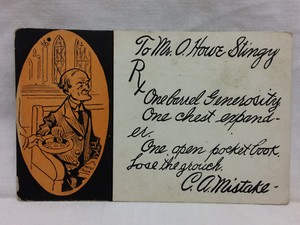 To Mr. O. Howe Stingy
Rx
One barrel Generosity
One chest expand-
er.
One open pocket book.
Lose the grouch.
C. A. Mistake-